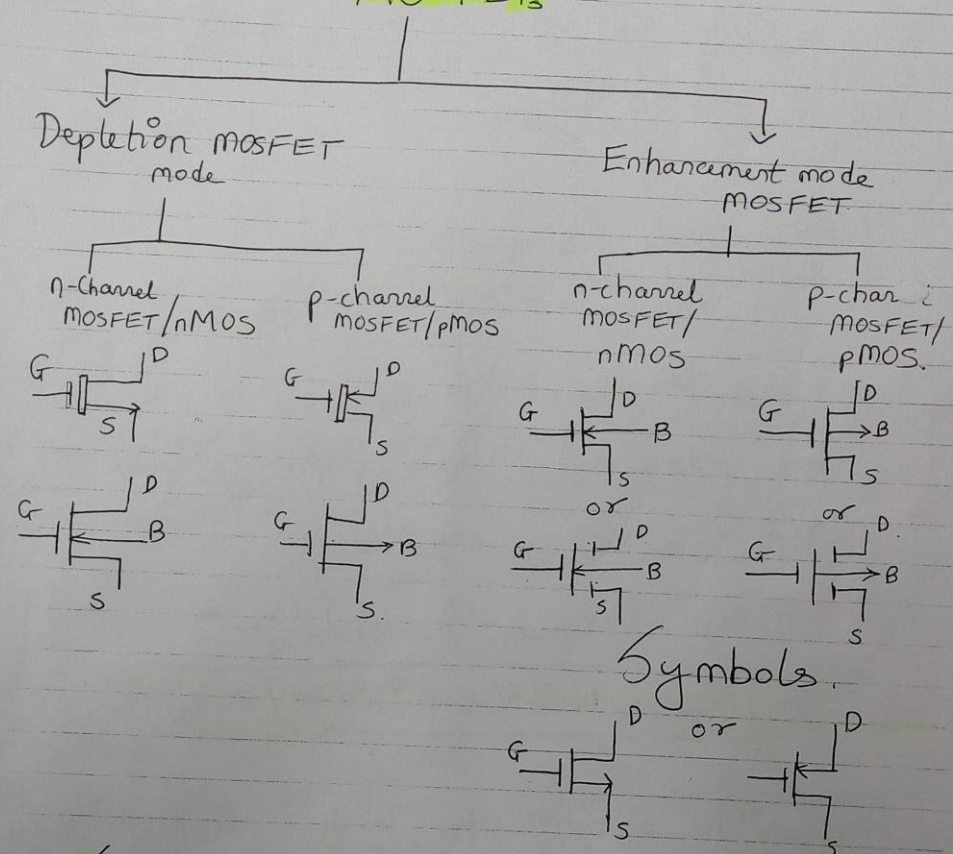 Depletion MOSFET
mode
Enhancement mode
MOSFET
n-Channel
MOSFET/nMOS
p-channel
MOSFET/pMOS
n-channel
MOSFET/
nMOS
p-chan
MOSFET/
pMOS.
G D S
G D S
G D B S
G D B S
or
or
G D B S
G D B S
G D B S
G D B S
Symbols.
G D S
or
D S